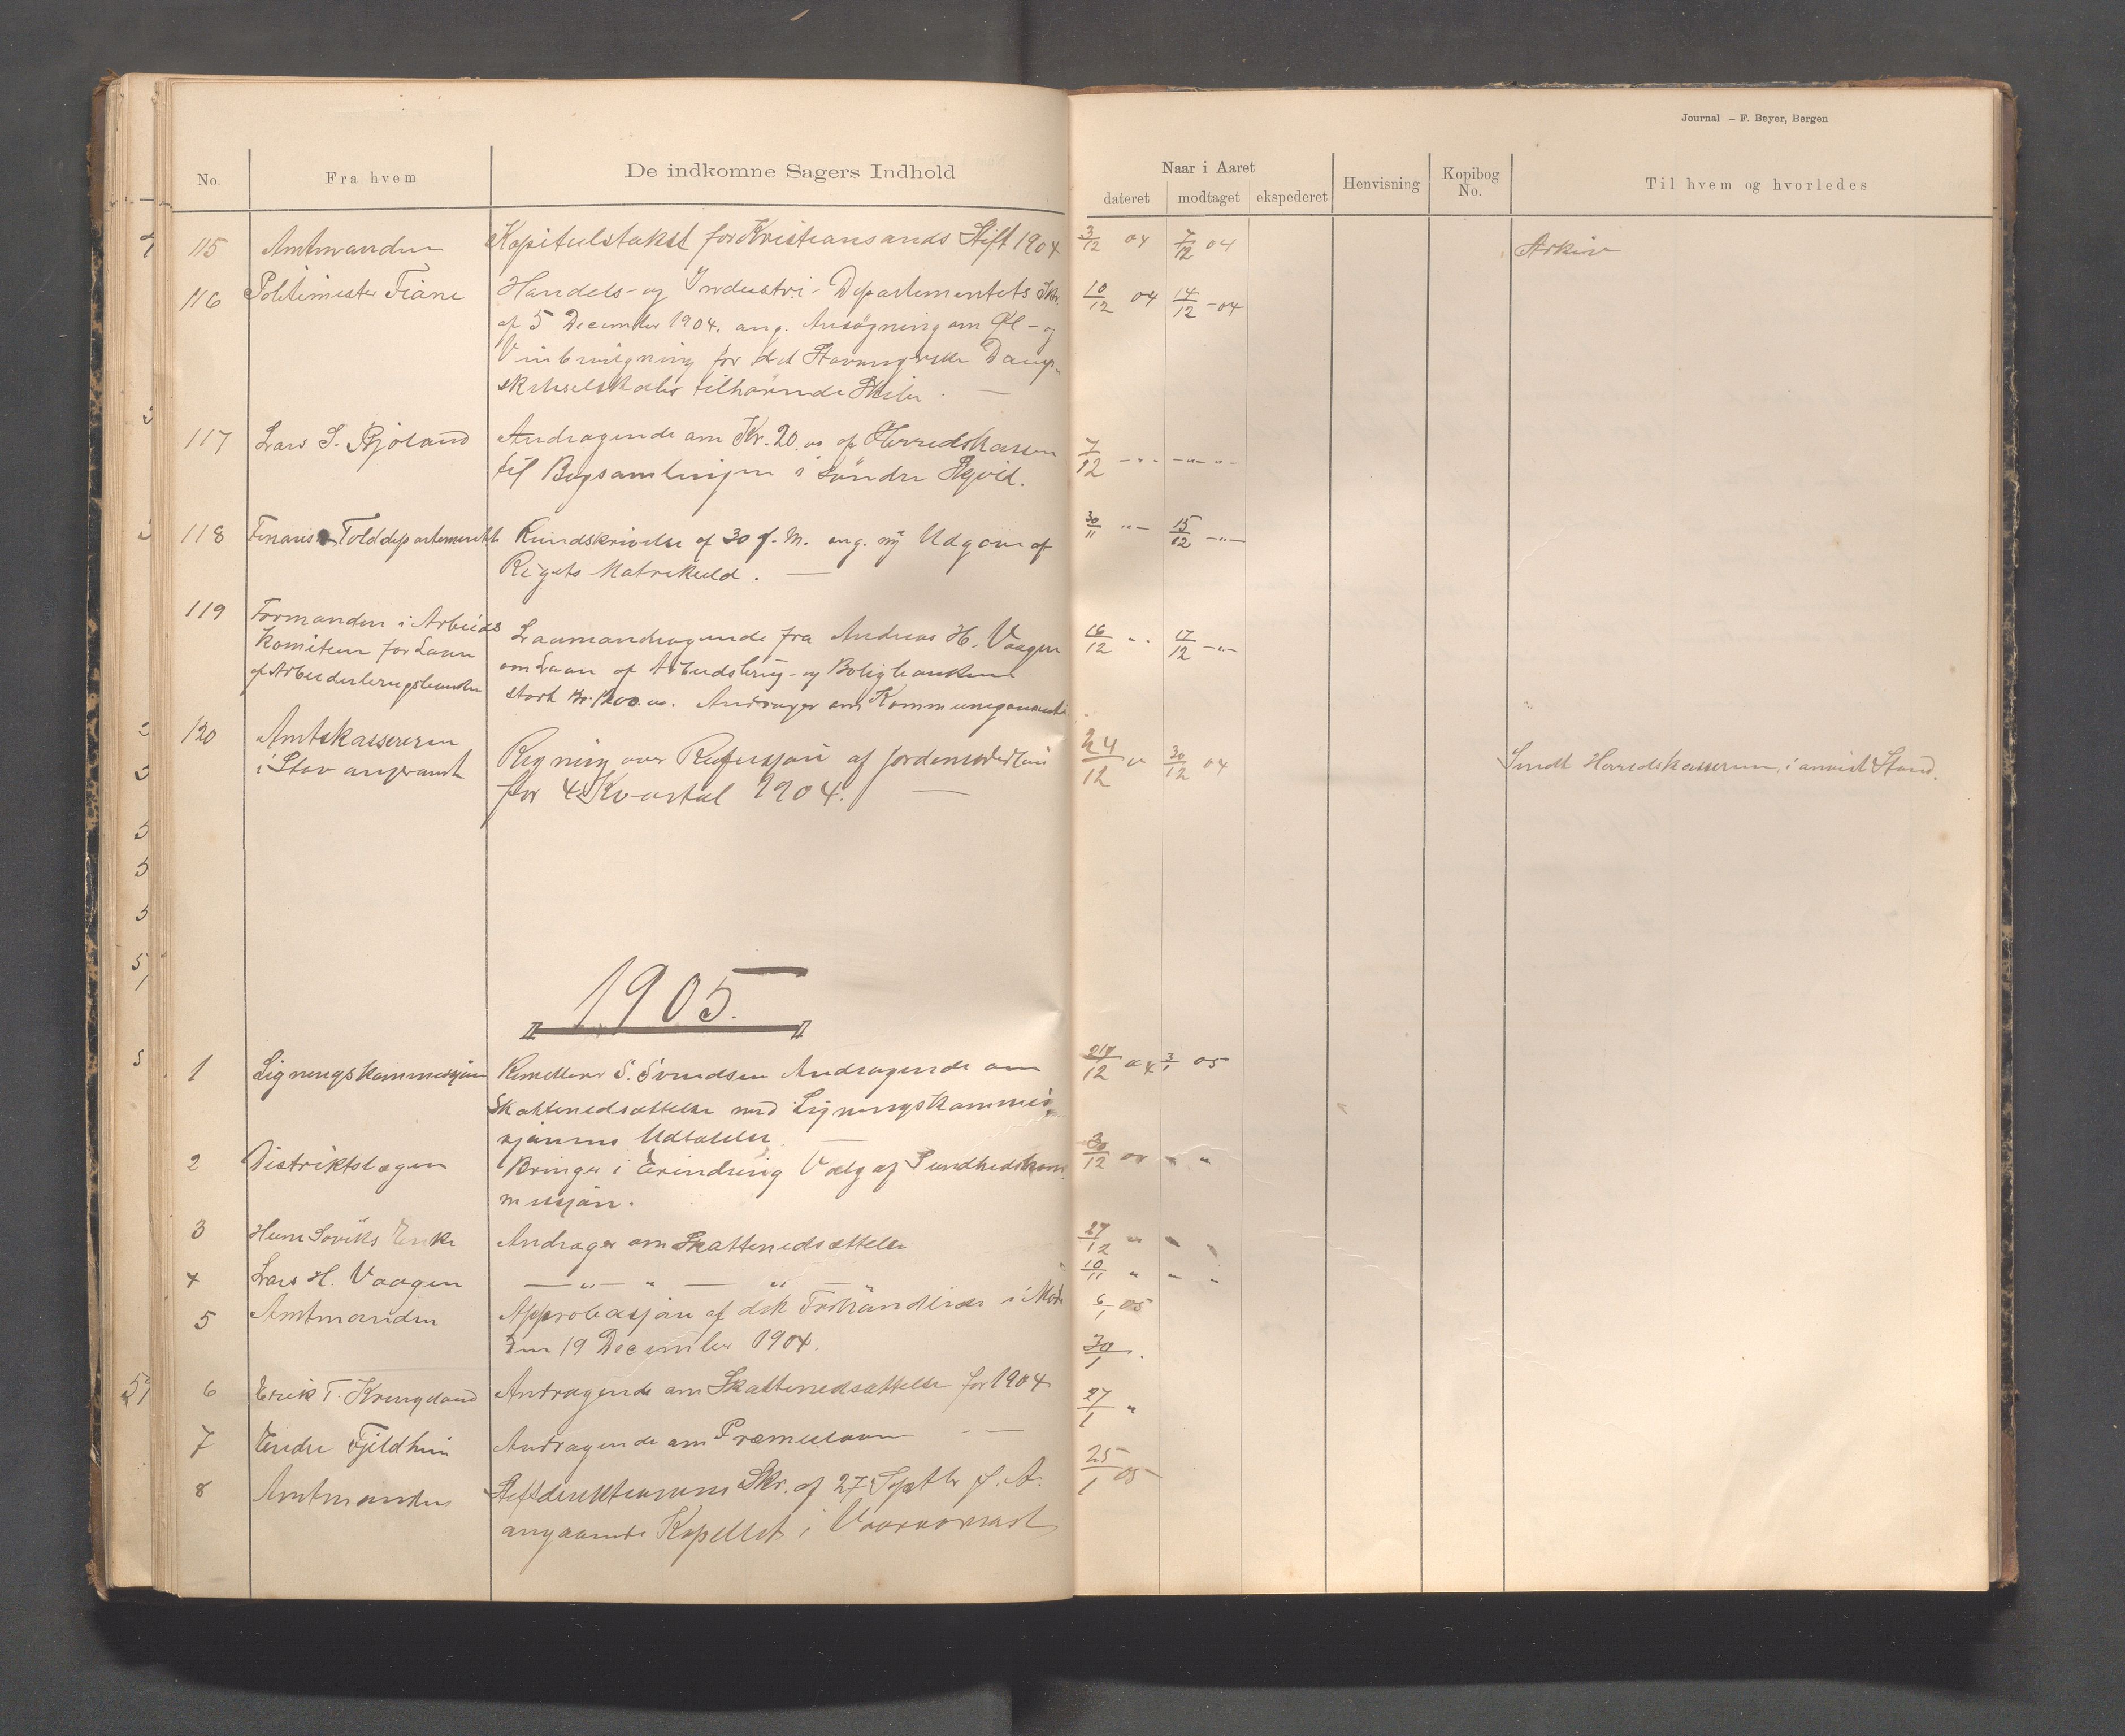 Journal – F. Beyer, Bergen
No. Fra hvem De indkomne Sagers Indhold Naar i Aaret Henvisning Kopibog No. Til hvem og hvorledes
dateret modtaget ekspederet
115 Amtmanden Kapitelstakst for Kristiansands Stift 1904 3/12 04 7/12 04 Arkiv
116 Politimester Fiane Handels- og Industri-Departementets Skr. 10/12 04 14/12 - 04
af 5 December 1904. ang. Ansøgning om Øl- og
Vinbevilgning for det Stavangerske Damp-
skibsselskabs tilhørende Skibe. —
117 Lars S. Bjoland Andragende om Kr. 20.00 af Herredskassen 7/12 - " - - " - " -
til Bogsamlingen i Søndre
118 Finans Tolddepartementet Rundskrivelse af 30 f. M. ang. ny Udgave af 30/11 " - 15/12 - " -
Rigets Matrikul. —
119 Formanden i Arbeids Laaneandragende fra Andreas H. Vaagen 16/12 " 17/12 - " -
Komiteen for Laan om Laan af Arbeidsbrug- og Boligbanken
af Arbeiderbrugsbanken stort Kr. 1200.00. Andrager om Kommunegaranti
120 Amtskassereren Regning over Refusjon af Jordemoderløn 24/12 " 30/12 04 Sendt Herredskassereren, i anvist Stand.
i Stavanger amt for 4 Kvartal 1904. —
1905.
1 Ligningskommissjonen S. Svendsen Andragende om 04 3/1 05
Skattenedsættelse med Ligningskommis-
sjonens Udtalelse —
2 Distriktslægen Bringer i Erindring Valg af Sundhedskom 30/12 04 " "
missjon.
3 Enke Andrager om Skattenedsættelse 27/12 " " "
4 Lars H. Vaagen — " — " — " 10/11 " " "
5 Amtmanden Approbasjon af Forhandlinger i Møde 6/1 05
den 19 December 1904. 30/1.
6 Erik T. Andragende om Skattenedsættelse for 1904 27/1 "
7 Endre Fjeldheim Andragende om Præmielaan — —
8 Amtmanden Stiftsdirektionens Skr. af 27 Septbr f. A. 25/1 05
angaaende Kapellet i